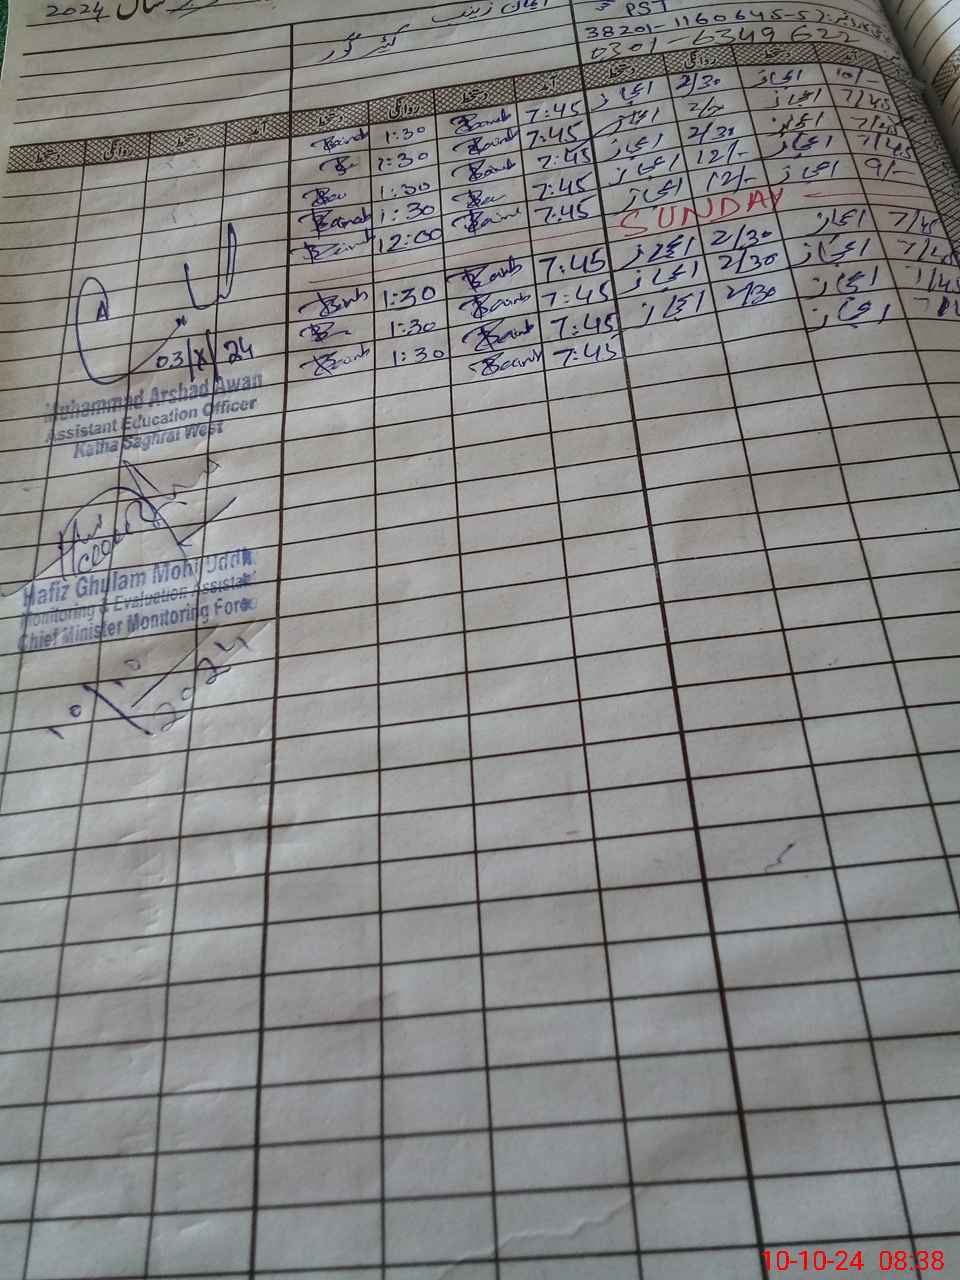 سال 2024
PST
38201-1160645-5
0301-6349622
آمد دستخط روانگی دستخط آمد دستخط روانگی دستخط آمد دستخط روانگی دستخط
10/- اعجاز 2/30 اعجاز 7:45 Zainab 1:30 Zainab
7/45 اعجاز اعجاز 7:45 Zainab 1:30
7/45 اعجاز 2/30 اعجاز 7:45 Zainab 1:30
7/45 اعجاز 12/- اعجاز 7:45 1:30 Zainab
9/- اعجاز 12/- اعجاز 7:45 Zainab 12:00 Zainab
SUNDAY
7/45 اعجاز 2/30 اعجاز 7:45 Zainab 1:30 Zainab
7/45 اعجاز 2/30 اعجاز 7:45 Zainab 1:30
7/45 اعجاز 2/30 اعجاز 7:45 Zainab 1:30 Zainab
اعجاز 7:45 Zainab
03/X/24
Muhammad Arshad Awan
Assistant Education Officer
Katha Saghral West
Hafiz Ghulam Mohi Uddin
Monitoring & Evaluation Assistant
Chief Minister Monitoring Force
10/10/2024
10-10-24 08:38